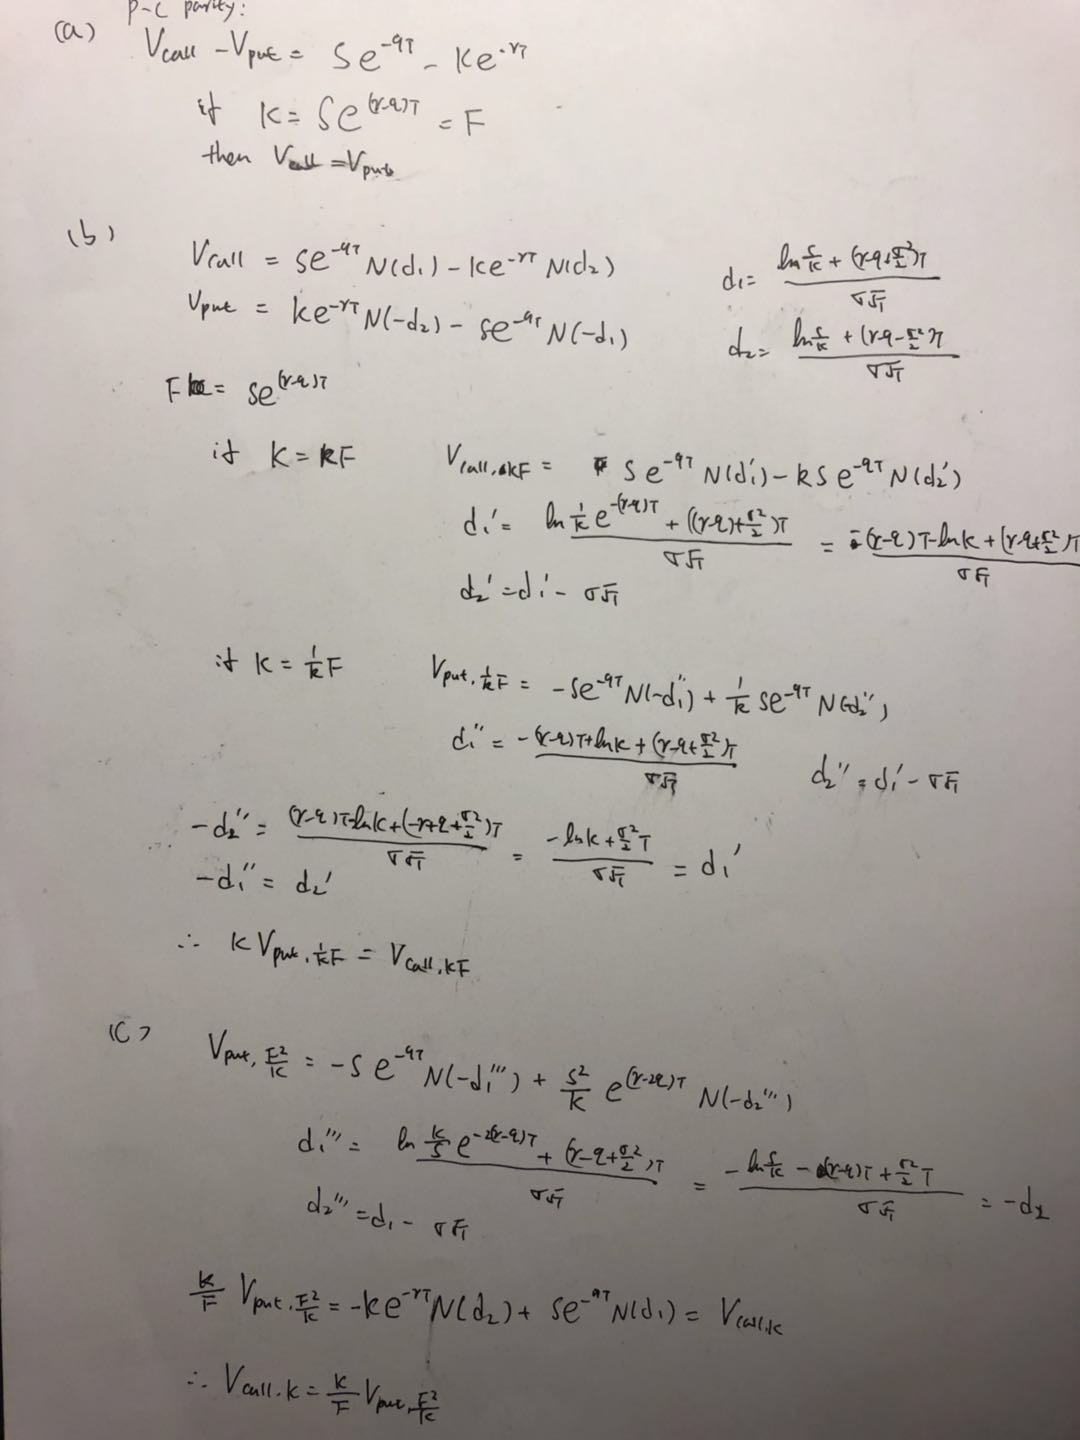 P-C parity:
(a) Vcall - Vput = Se^{-qT} - Ke^{-rT}
if K = Se^{(r-q)T} = F
then Vcall = Vput
(b)
Vcall = Se^{-qT} N(d₁) - Ke^{-rT} N(d₂) d₁ = (ln S/K + (r-q+σ²/2)T) / σ√T
Vput = Ke^{-rT} N(-d₂) - Se^{-qT} N(-d₁) d₂ = (ln S/K + (r-q-σ²/2)T) / σ√T
F = Se^{(r-q)T}
if K = kF V_{call,kF} = Se^{-qT} N(d₁') - kSe^{-qT} N(d₂')
d₁' = (ln 1/k e^{-(r-q)T} + ((r-q)+σ²/2)T) / σ√T = (-(r-q)T - ln k + (r-q+σ²/2)T) / σ√T
d₂' = d₁' - σ√T
if K = 1/k F V_{put,1/k F} = -Se^{-qT} N(-d₁'') + 1/k Se^{-qT} N(-d₂'')
d₁'' = (-(r-q)T + ln k + (r-q+σ²/2)T) / σ√T d₂'' = d₁' - σ√T
-d₂'' = ((r-q)T - ln k + (-r+q+σ²/2)T) / σ√T = (-ln k + σ²/2 T) / σ√T = d₁'
-d₁'' = d₂'
∴ k V_{put,1/k F} = V_{call,kF}
(c) V_{put,F²/K} = -Se^{-qT} N(-d₁''') + S²/K e^{(r-2q)T} N(-d₂''')
d₁''' = (ln K/S e^{-2(r-q)T} + (r-q+σ²/2)T) / σ√T = (-ln S/K - (r-q)T + σ²/2 T) / σ√T = -d₂
d₂''' = d₁ - σ√T
K/F V_{put,F²/K} = -Ke^{-rT} N(d₂) + Se^{-qT} N(d₁) = V_{call,K}
∴ V_{call,K} = K/F V_{put,F²/K}